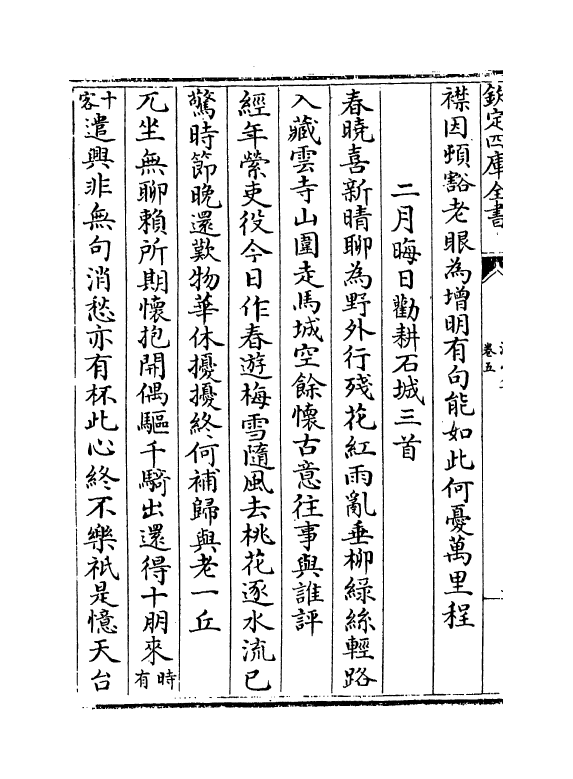 欽定四庫全書
卷五
襟因頓豁老眼為增明有句能如此何憂萬里程
二月晦日勸耕石城三首
春曉喜新晴聊為野外行殘花紅雨亂垂柳綠絲輕路
入藏雲寺山圍走馬城空餘懷古意往事與誰評
經年縈吏役今日作春遊梅雪隨風去桃花逐水流已
驚時節晚還歎物華休擾擾終何補歸與老一丘
兀坐無聊賴所期懷抱開偶驅千騎出還得十朋來時有
十客遣興非無句消愁亦有杯此心終不樂祇是憶天台